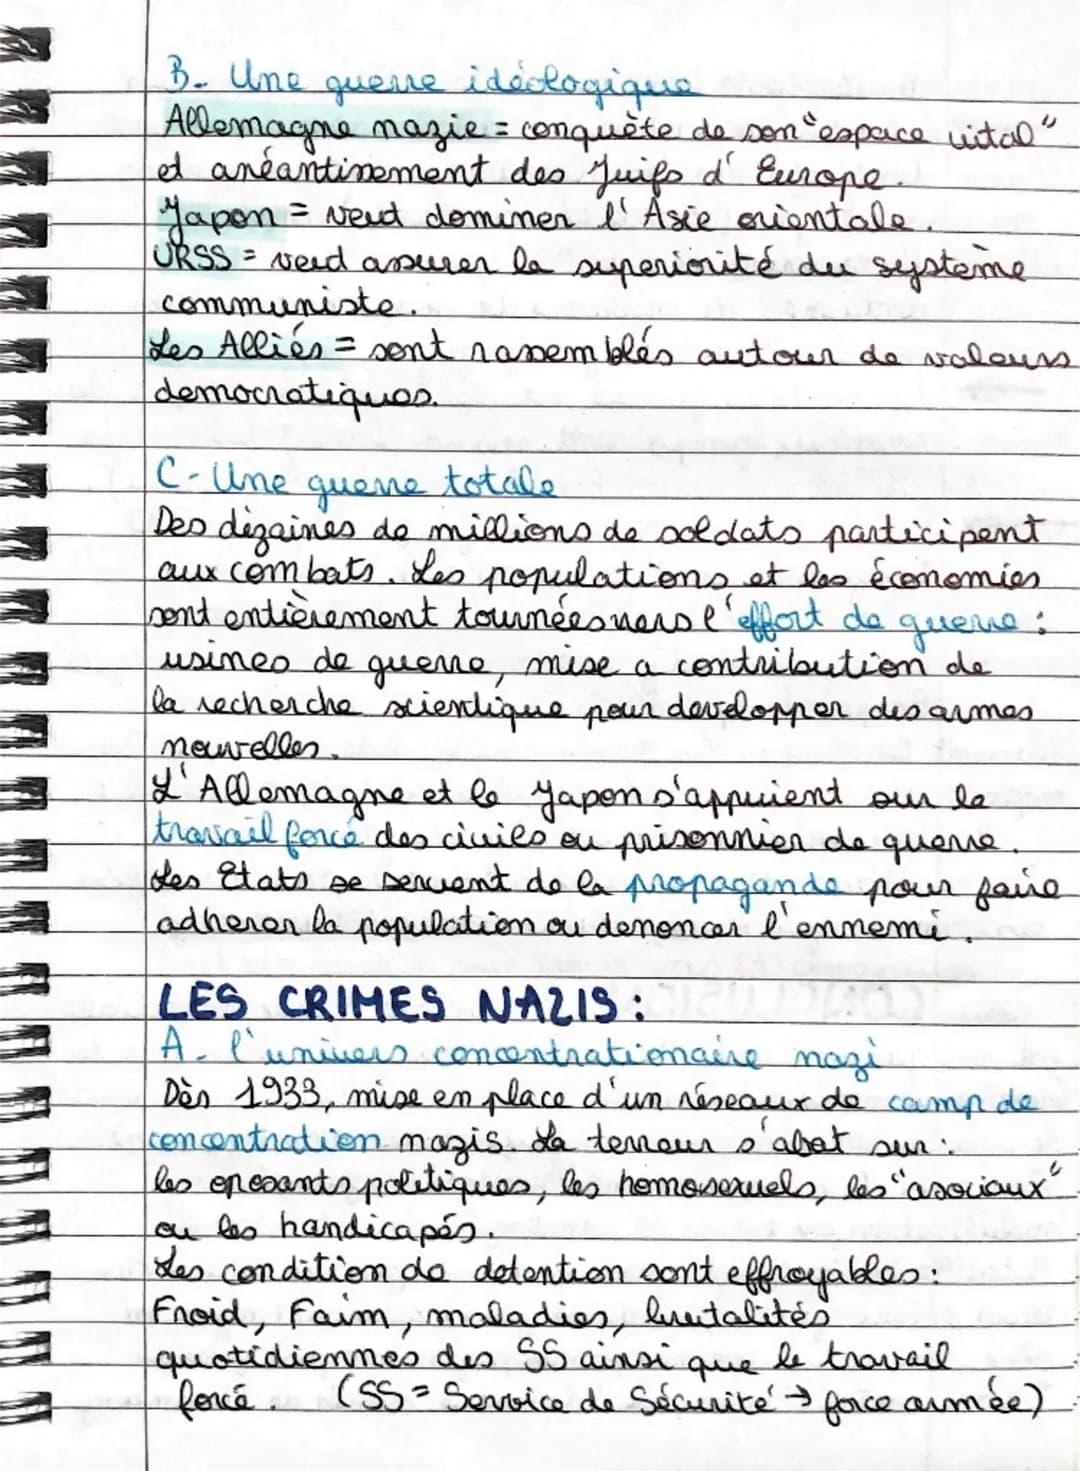 B- Une guerre idéologique
Allemagne nazie = conquête de son "espace vital"
et anéantissement des Juifs d'Europe.
Japon = veut dominer l'Asie orientale.
URSS = veut assurer la superiorité du système
communiste.
Les Alliés = sont rassemblés autour de valeurs
democratiques.
C- Une guerre totale
Des dizaines de millions de soldats participent
aux combats. Les populations et les économies
sont entièrement tournées vers l'effort de guerre :
usines de guerre, mise a contribution de
la recherche scientique pour developper des armes
nouvelles.
L'Allemagne et le Japon s'appuient sur le
travail forcé des civils ou prisonnier de guerre.
Les Etats se servent de la propagande pour faire
adherer la population ou denoncer l'ennemi.
LES CRIMES NAZIS :
A- l'univers concentrationaire nazi
Dès 1933, mise en place d'un réseaux de camp de
concentration nazis. La terreur s'abat sur :
les oposants politiques, les homosexuels, les "asociaux"
ou les handicapés.
Les condition de detention sont effroyables :
Froid, Faim, maladies, brutalités
quotidiennes des SS ainsi que le travail
forcé. (SS = Service de Sécurité → force armée)